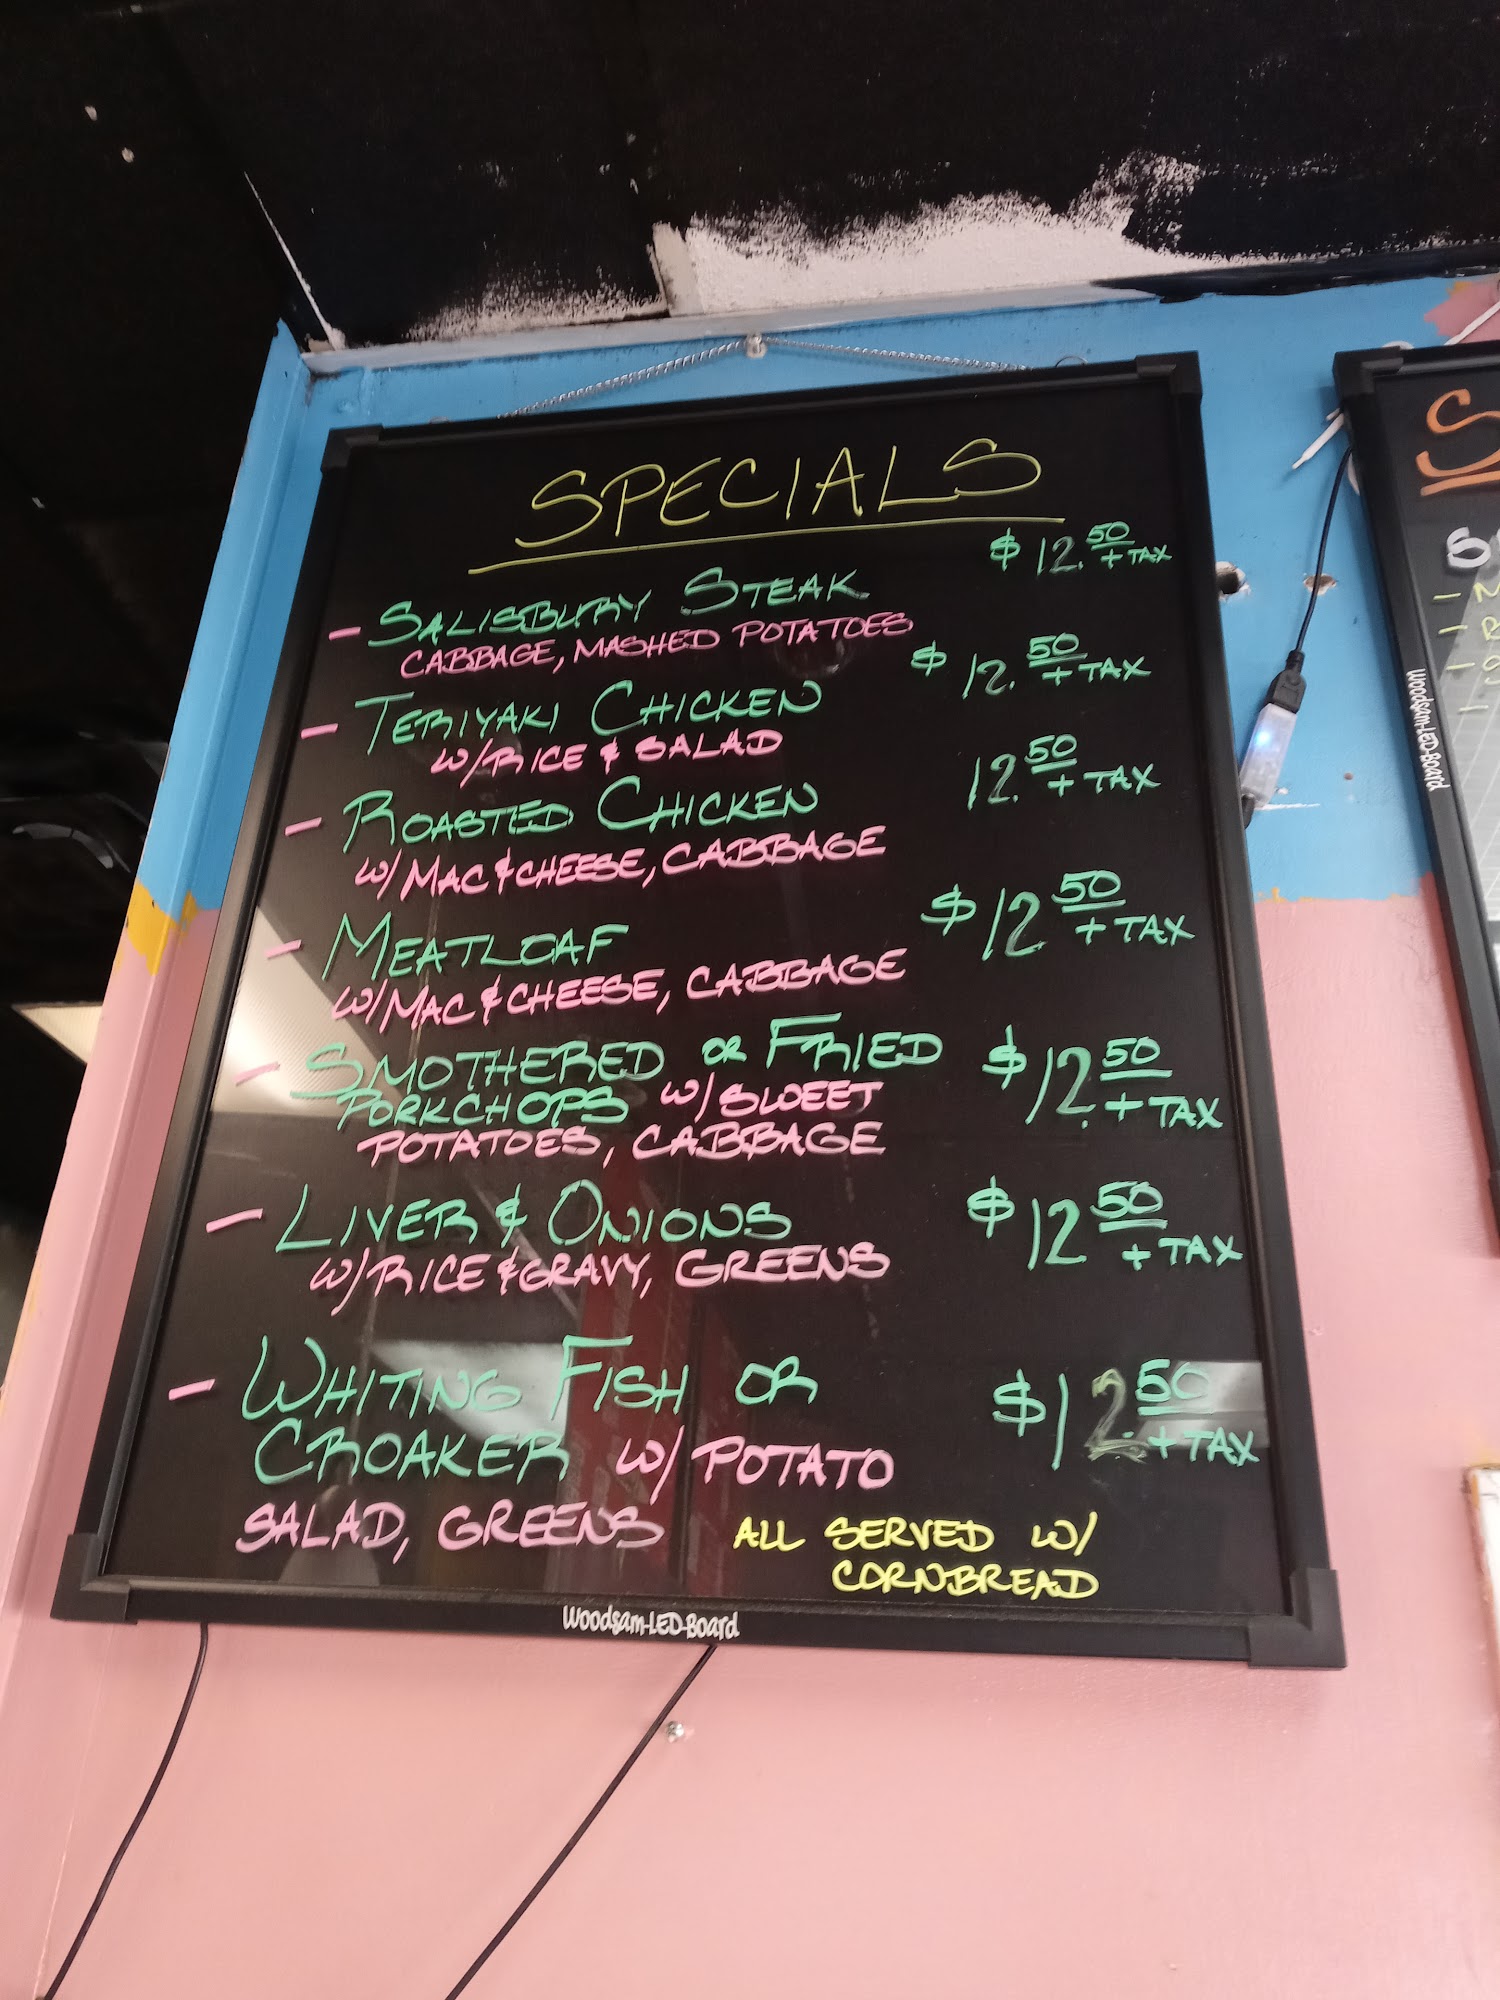 SPECIALS
$12.50 + TAX
- SALISBURY STEAK
CABBAGE, MASHED POTATOES
$12.50 + TAX
- TERIYAKI CHICKEN
W/RICE & SALAD
12.50 + TAX
- ROASTED CHICKEN
W/MAC & CHEESE, CABBAGE
$12.50 + TAX
- MEATLOAF
W/MAC & CHEESE, CABBAGE
- SMOTHERED OR FRIED $12.50 + TAX
PORKCHOPS W/SWEET
POTATOES, CABBAGE
- LIVER & ONIONS $12.50 + TAX
W/RICE & GRAVY, GREENS
- WHITING FISH OR $12.50 + TAX
CROAKER W/POTATO
SALAD, GREENS ALL SERVED W/
CORNBREAD
Woodsam-LED-Board
Woodsam-LED-Board